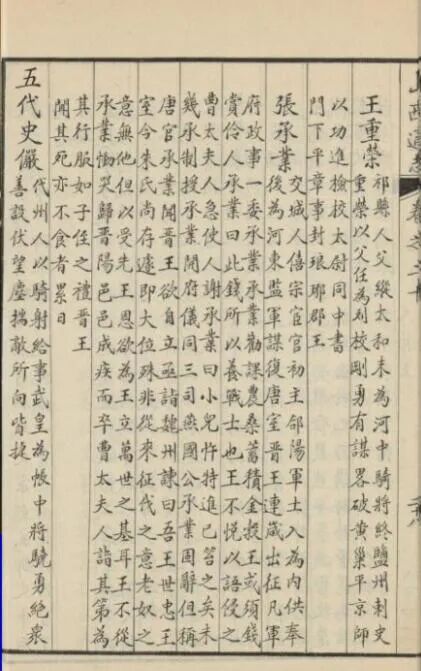 王重榮
祁縣人父縱太和末為河中騎將終鹽州刺史
重榮以父任為列校剛勇有謀畧破黃巢平京師
以功進檢校太尉同中書
門下平章事封琅琊郡王
張承業
交城人僖宗宦官初主郃陽軍士入為内供奉
後為河東監軍謀復唐室晉王連歲出征凡軍
府政事一委承業承業勸課農桑蓄積金投王或須錢
賞伶人承業曰此錢所以養戰士也王不悅以語侵之
曹太夫人急使人謝承業曰小兒忤特進已笞之矣未
幾承制授承業開府儀同三司燕國公承業固辭但稱
唐官承業聞晉王欲自立亟詣魏州諫曰吾王世忠王
室今朱氏尚存遽即大位殊非從來征伐之意老奴之
意無他但以受先王恩欲為王立萬世之基耳王不從
承業慟哭歸晉陽邑邑成疾而卒曹太夫人詣其第為
其行服如子侄之禮晉王
聞其死亦不食者累日
五代史儼
代州人以騎射給事武皇為帳中將驍勇絶衆
善設伏望塵揣敵所向皆捷